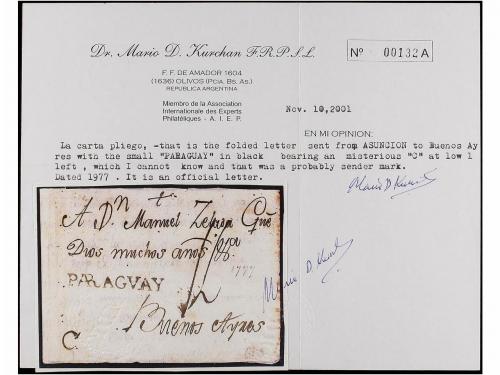 Dr. Mario D. Kurchan F.R.P.S.L.
Nº 00132A
F. F. DE AMADOR 1604
(1636) OLIVOS (Pcia. Bs. As.)
REPUBLICA ARGENTINA
Miembro de la Association
Internationale des Experts
Philatéliques - A. I. E. P.
Nov. 10,2001
EN MI OPINION:
La carta pliego, -that is the folded letter sent from ASUNCION to Buenos Ay
res with the small "PARAGUAY" in black bearing an misterious "C" at low l
left , which I cannot know and that was a probably sender mark.
Dated 1977 . It is an official letter.
Mario D Kurchan
A Dn Manuel Que
Dios muchos años
1777
PARAGUAY
Buenos Ayres
C
Mario D. Kurchan